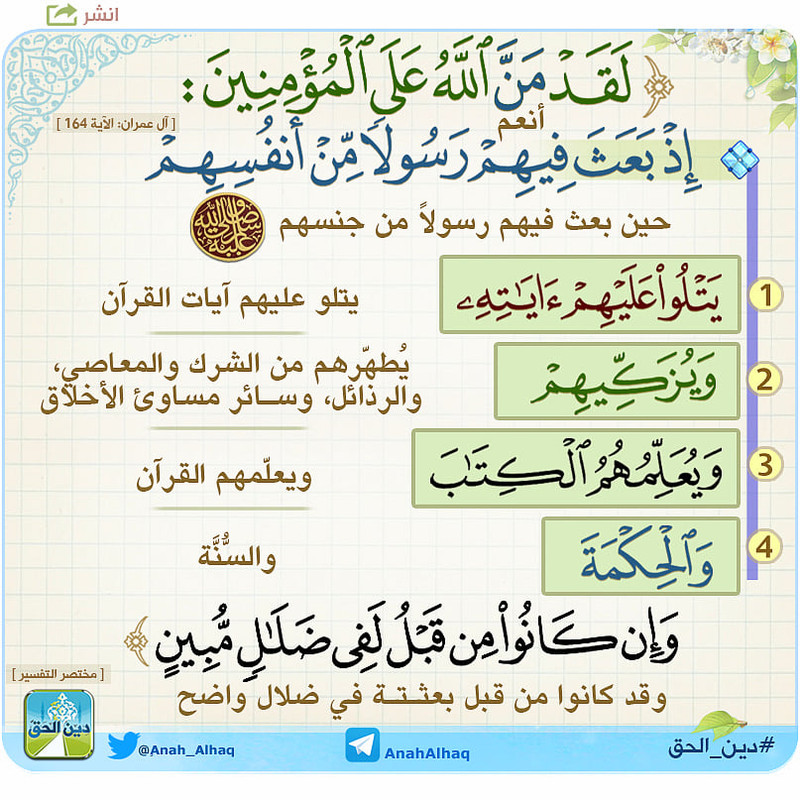 انشر
﴿ لَقَدْ مَنَّ ٱللَّهُ عَلَى ٱلْمُؤْمِنِينَ :
أنعم
[ آل عمران: الآية 164 ]
إِذْ بَعَثَ فِيهِمْ رَسُولًا مِّنْ أَنفُسِهِمْ
حين بعث فيهم رسولاً من جنسهم صلى الله عليه وسلم
1 يَتْلُوا۟ عَلَيْهِمْ ءَايَـٰتِهِۦ يتلو عليهم آيات القرآن
2 وَيُزَكِّيهِمْ يُطهّرهم من الشرك والمعاصي،
والرذائل، وسائر مساوئ الأخلاق
3 وَيُعَلِّمُهُمُ ٱلْكِتَـٰبَ ويعلّمهم القرآن
4 وَٱلْحِكْمَةَ والسُّنَّة
وَإِن كَانُوا۟ مِن قَبْلُ لَفِى ضَلَـٰلٍ مُّبِينٍ ﴾
[ مختصر التفسير ]
وقد كانوا من قبل بعثـتـة في ضلال واضح
دين الحق
@Anah_Alhaq
AnahAlhaq
#دين_الحق